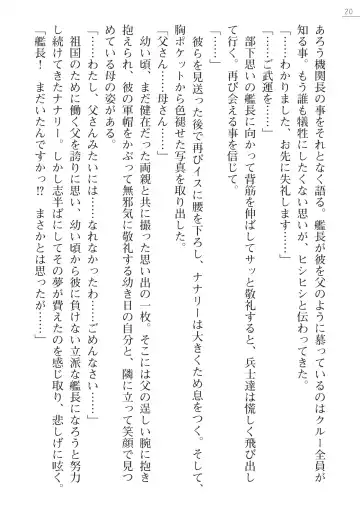 20
あろう機関長の事をそれとなく語る。艦長が彼を父のように慕っているのはクルー全員が
知る事。もう誰も犠牲にしたくない思いが、ヒシヒシと伝わってきた。
「……わかりました、お先に失礼します……」
「……ご武運を……」
部下思いの艦長に向かって背筋を伸ばしてサッと敬礼すると、兵士達は慌しく飛び出し
て行く。再び会える事を信じて。
彼らを見送った後で再びイスに腰を下ろし、ナナリーは大きくため息をつく。そして、
胸ポケットから色褪せた写真を取り出した。
「父さん……母さん……」
幼い頃、まだ健在だった両親と共に撮った思い出の一枚。そこには父の逞しい腕に抱き
抱えられ、彼の軍帽をかぶって無邪気に敬礼する幼き日の自分と、隣に立って笑顔で見つ
めている母の姿がある。
「……わたし、父さんみたいには……なれなかったわ……ごめんなさい……」
祖国のために働く父を誇りに思い、幼い頃から彼に負けない立派な艦長になろうと努力
し続けてきたナナリー。しかし志半ばにしてその夢が費えたのを感じ取り、悲しげに呟く。
「艦長！　まだいたんですかっ!?　まさかとは思ったが……」